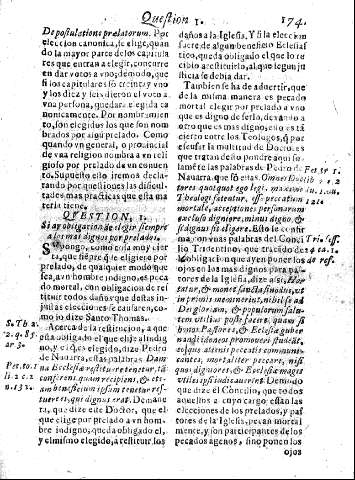 Question 1. 174.
De postulatione prælatorum. Por
eleccion canonica, se elige, quan
do la mayor parte de los capitula
res que entran a elegir, concurre
en dar votos a vno; de modo, que
si los capitulares sõ treinta y vno
y los diez y seis dieron el voto a
vna persona, quedará elegida ca
nonicamente. Por nombramien
to, son elegidos los que son nom
brados por algun prelado. Como
quando vn general, o prouincial
de vna religion nombra a vn reli
gioso por prelado de vn conuen
to. Supuesto esto iremos decla
rando por questiones las dificul
tades mas practicas que esta ma
teria tiene.
QVESTION. 1.
Si ay obligacion de elegir siempre
a los mas dignos por prelados.
Supongo, como cosa muy cier
ta, que siempre q̃ se eligiere por
prelado, de qualquier modo que
sea, a vn hombre indigno, es peca
do mortal, con obligacion de res
tituir todos daños que destas in
justas elecciones se causaren, co
mo lo dize Santo Thomas.
Acerca de la restitucion, a que
está obligado el que elije al indig
no, y el q̃ es elegido, dize Pedro
de Nauarra, estas palabras: Dam
na Ecclesiæ restituere tenetur, tã
conferens quam recipiens, & etiam
beneficium ipsum tenetur res-
tituere is, qui dignus erat. Demane
ra, que dize este Doctor, que el
que elige por prelado a vn hom
bre indigno, queda obligado el,
y el mismo elegido, a restituir los
S. Th. 2.
2. q. 85.
ar 3.
Per. to. 1
li. 2. c. 2
n. 132.
daños a la Iglesia. Y si la eleccion
fuere de algun beneficio Eclesias
tico, queda obligado el que lo re
cibio a restituirlo, al que segun ju
sticia se debia dar.
Tambien se ha de aduertir, que
de la misma manera es pecado
mortal elegir por prelado a vno
que es digno de serlo, dexando a
otro que es mas digno, esto es tã
cierto entre los Teologos, q̃ por
escusar la multitud de Doctores
que tratan desto pondre aqui so
lamẽte las palabras de Pedro de
Nauarra, que son estas. Omnes Docto
tores quotquot ego legi, maxime
Theologi fatentur, esse peccatum
mortale, acceptiones personarum
excluso digniore, minus digno, &
si dignus sit eligere. Esto se confir
ma, con vnas palabras del Conci
lio Tridentino, que tratando de la
obligacion que ay en poner los
ojos en los mas dignos para pas
tores de la Iglesia, dize assi, Hor
tatur, & monet sancta sinodus, vt
in primis meminerint, nihil se ad
Dei gloriam, & populorum salu-
tem vtilius posse facere, quam si
bonos Pastores, & Ecclesiæ guber
nandæ idoneos promoueri studeãt,
eosque alienis peccatis communi-
cantes, mortaliter peccare, nisi
quos digniores, & Ecclesiæ magis
vtiles ipsi iudicauerint. De modo
que dize el Concilio, que todos
aquellos a cuyo cargo están las
elecciones de los prelados, y pas
tores de la Iglesia, pecan mortal
mente, y son participantes de los
pecados agenos, sino ponen los
ojos